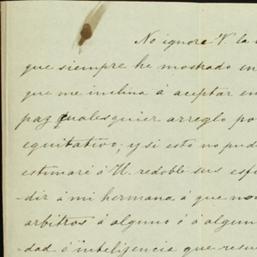 No ignora V. la
que siempre he mostrado en
que me inclina á aceptar en
paz qualesquier arreglo po
equitativo; y si esto no pud
estimaré á U. redoble sus esf
dir á mi hermana á que no
arbitros ó alguno ó á algun
dad é inteligencia que resu